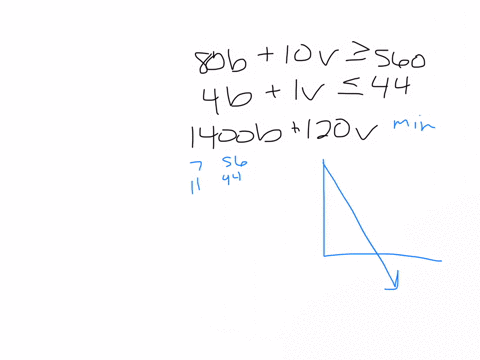 80b + 10v ≥ 560
4b + 1v ≤ 44
1400b + 120v min
7 56
11 44